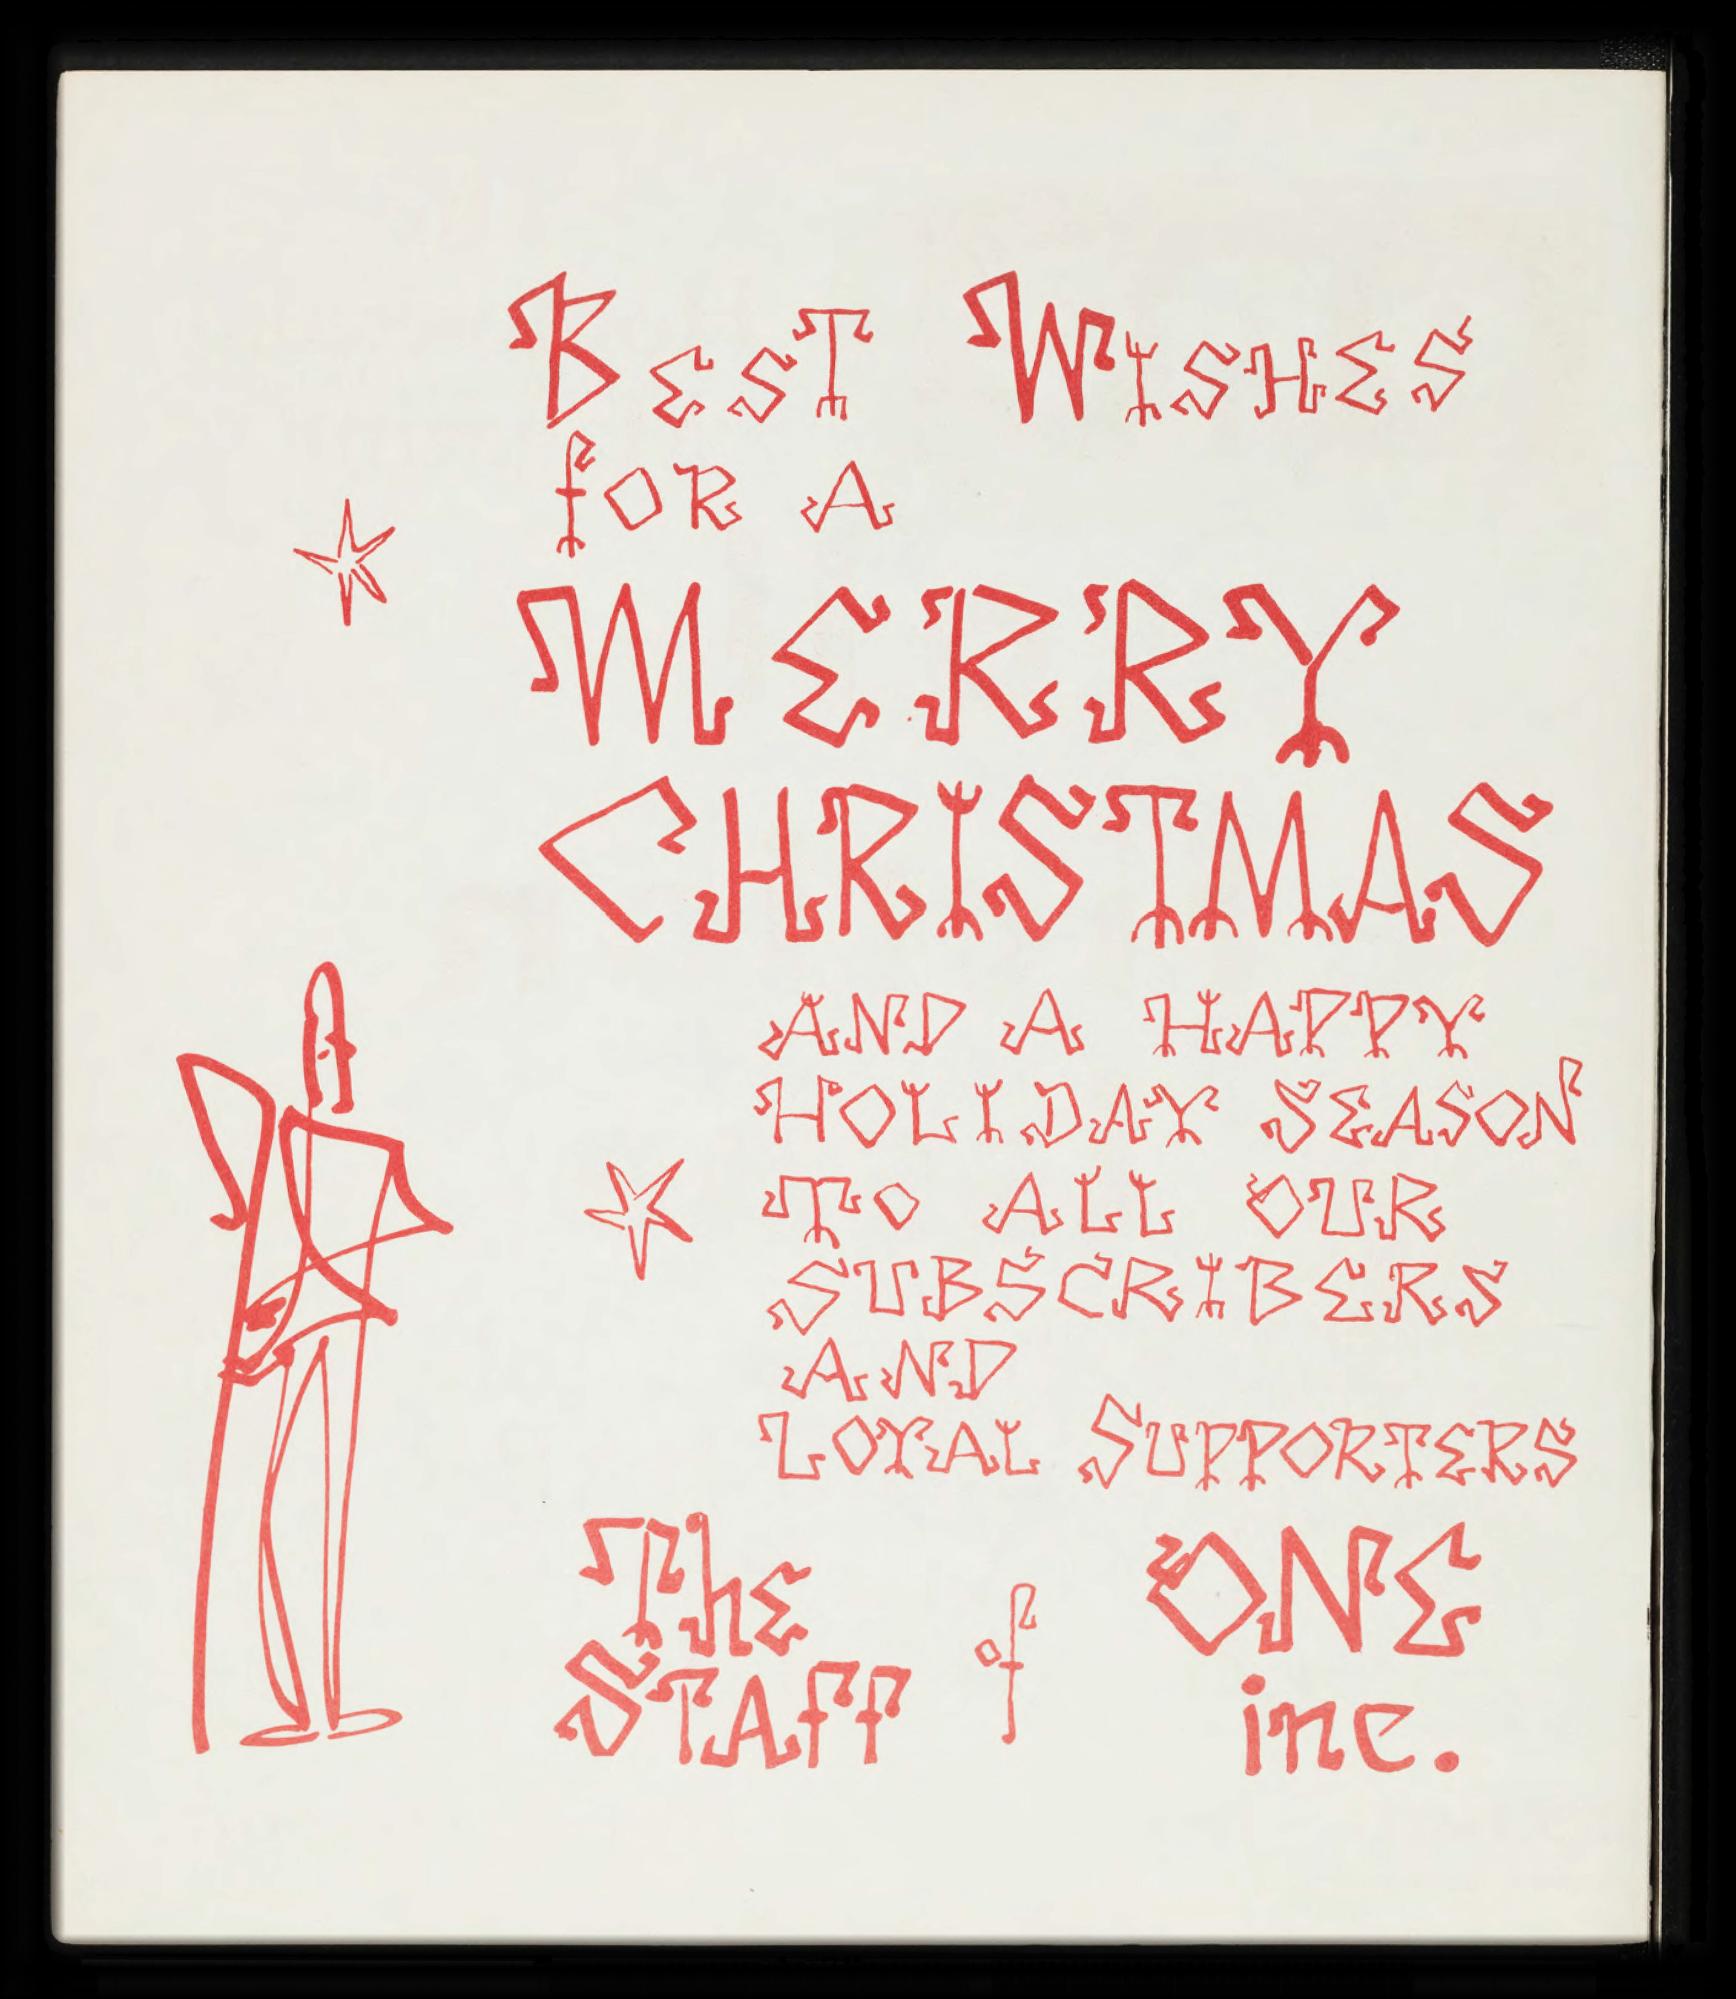 Best Wishes
for a
MERRY
CHRISTMAS
AND A HAPPY
HOLIDAY SEASON
TO ALL OUR
SUBSCRIBERS
AND
LOYAL SUPPORTERS
The
STAff of ONE
inc.